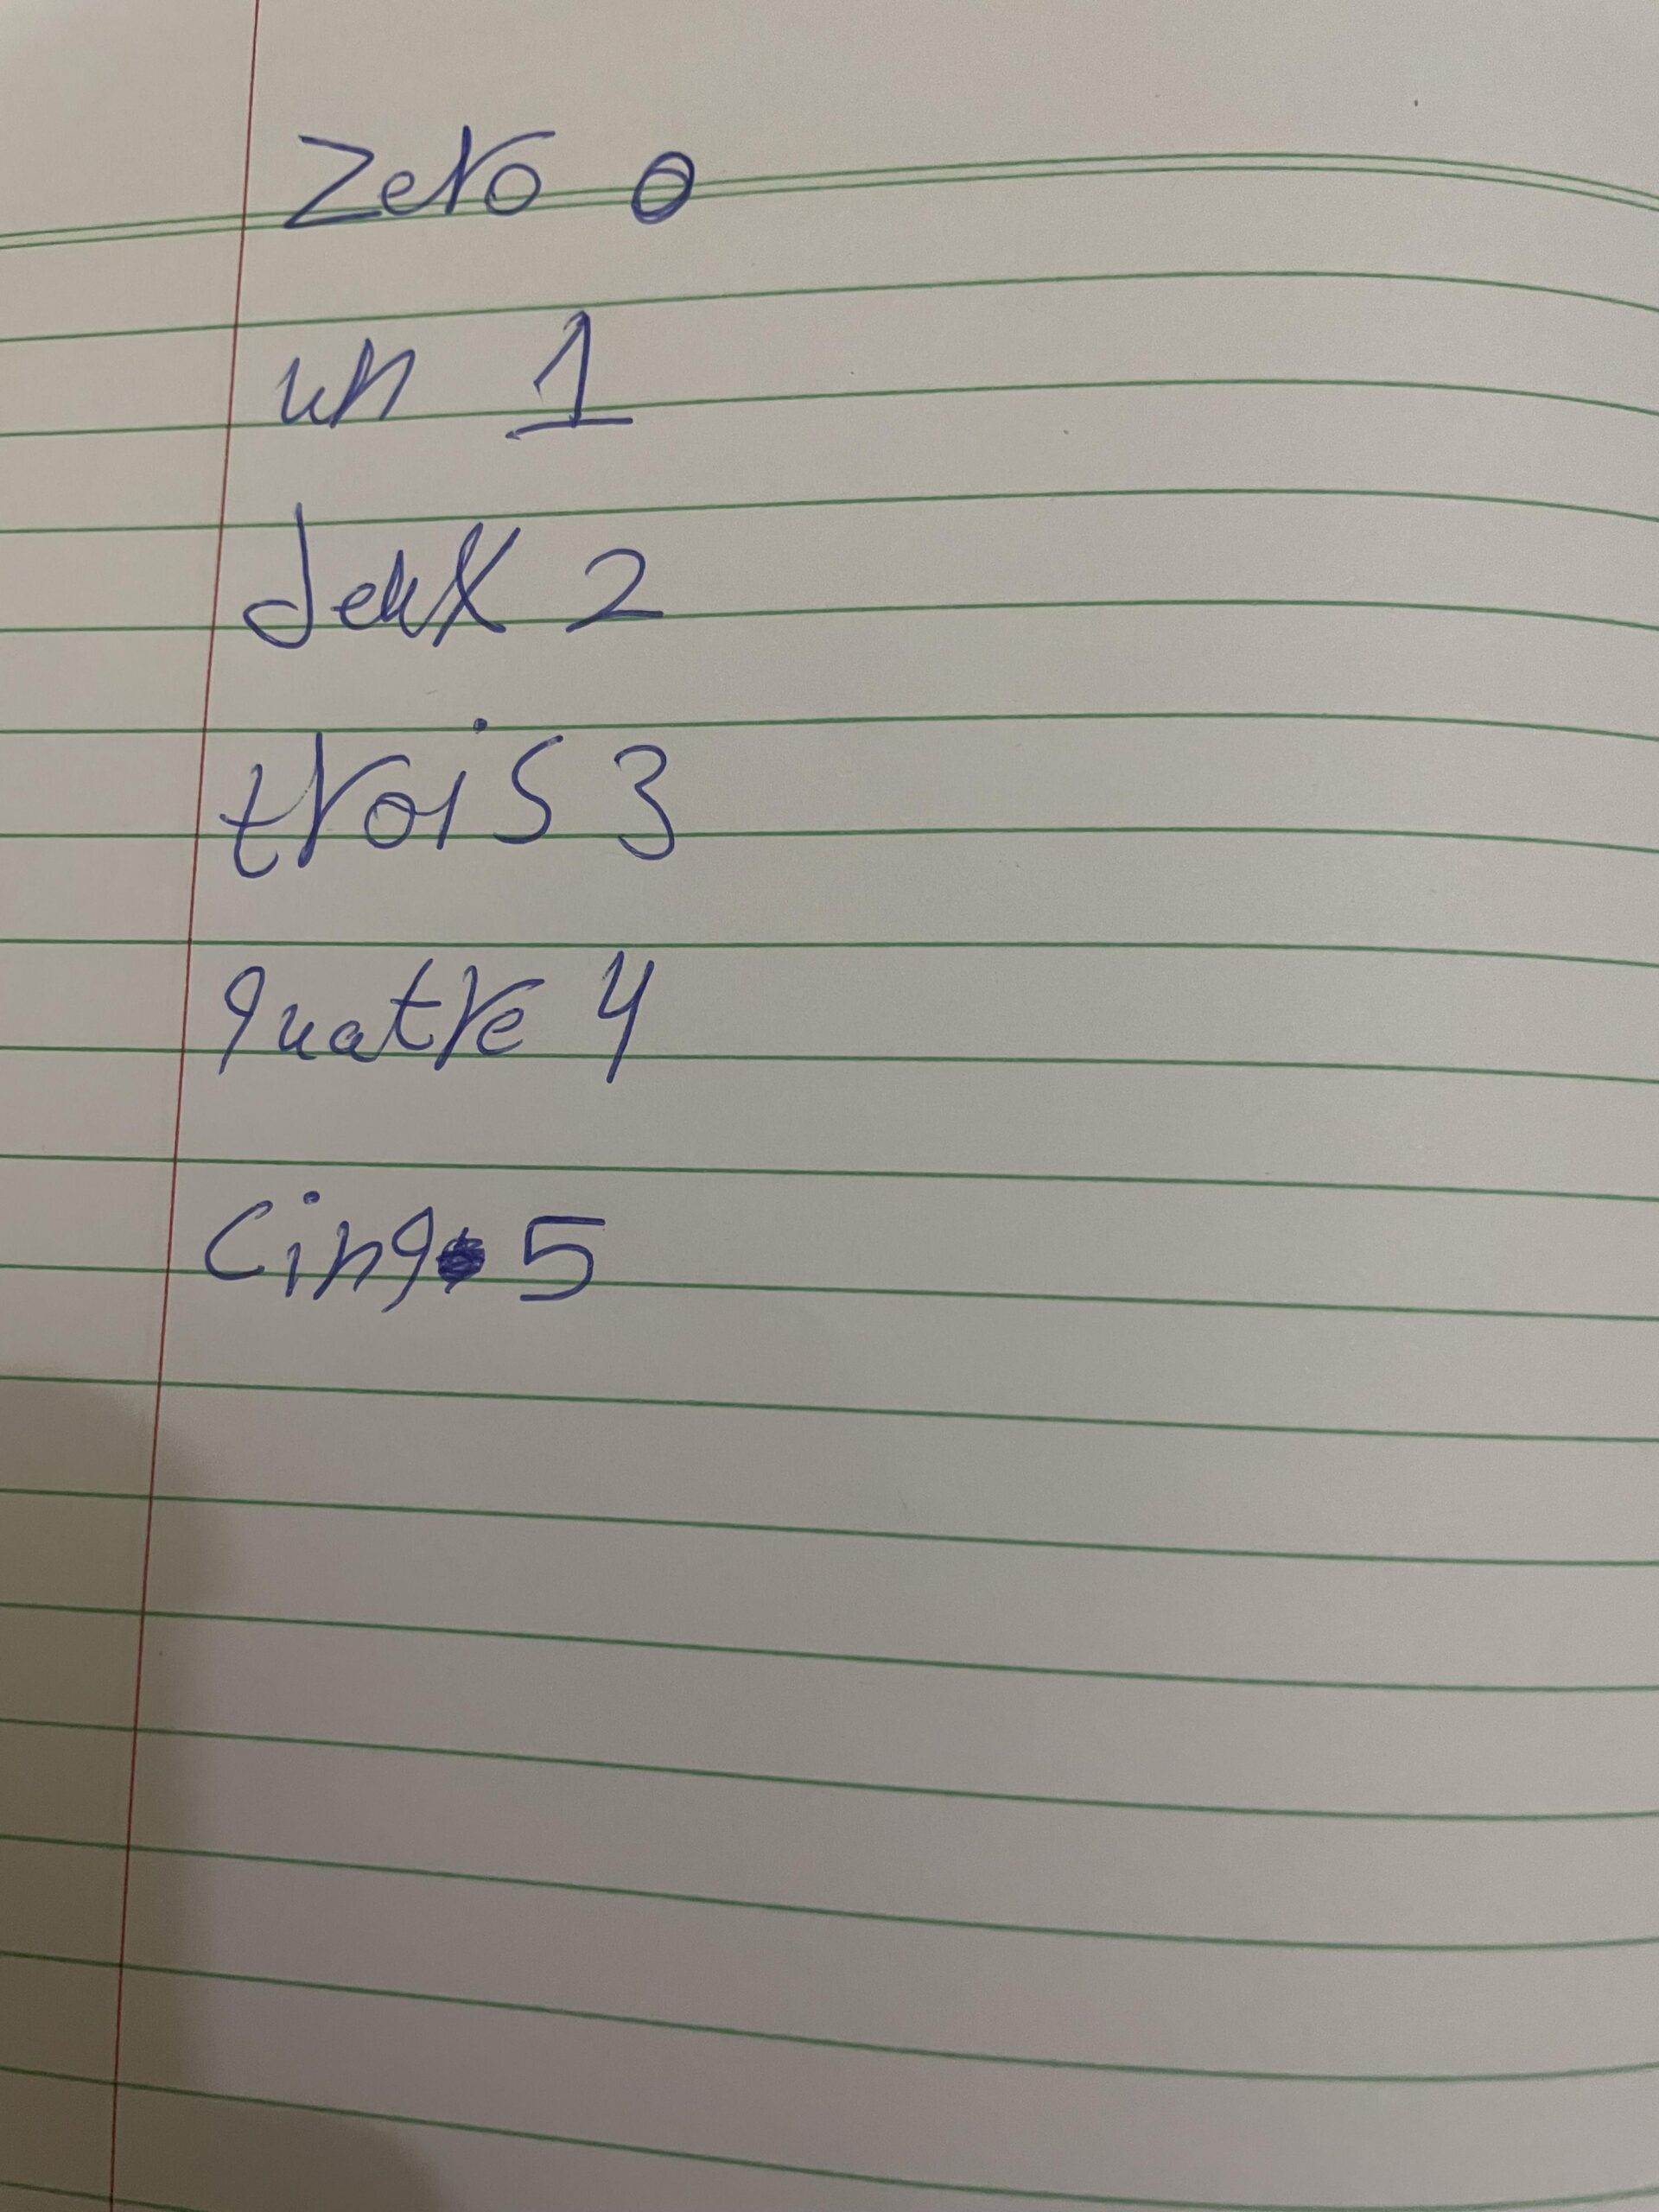 Zero 0
un 1
deux 2
trois 3
quatre 4
Cinq 5